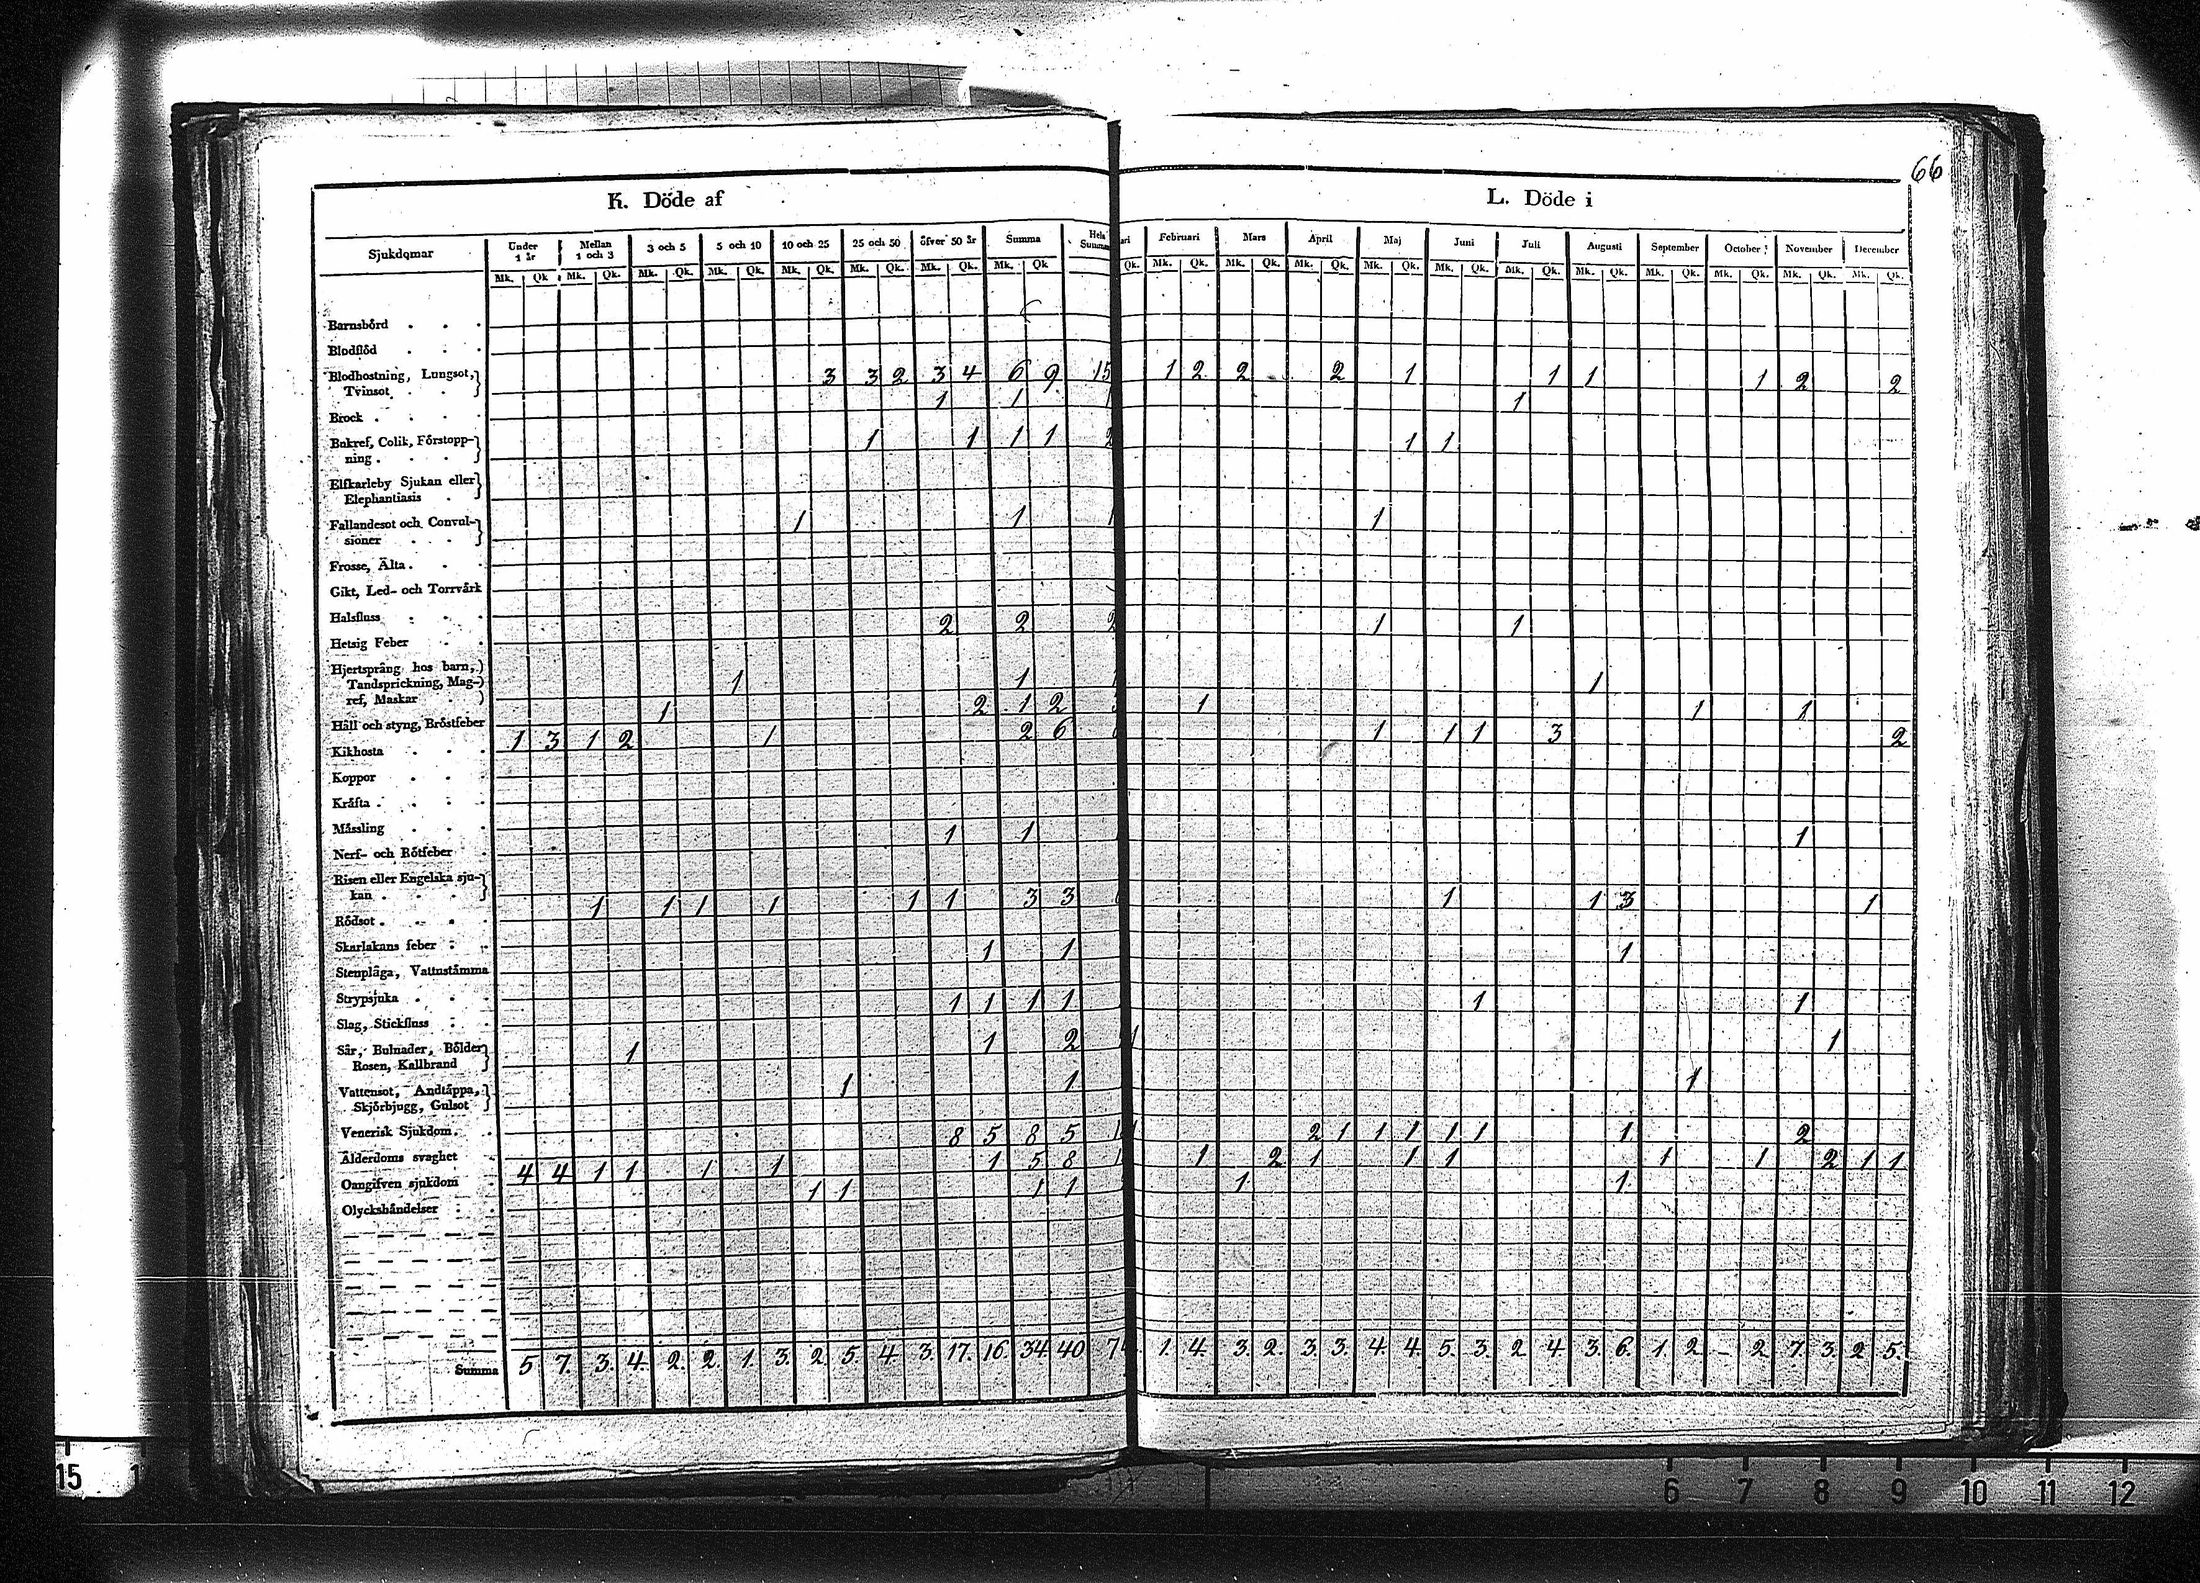 66
K. Döde af L. Döde i
Sjukdomar Under 1 år Mellan 1 och 3 3 och 5 5 och 10 10 och 25 25 och 50 öfver 50 år Summa Hela Summan Februari Mars April Maj Juni Juli Augusti September October November December
Mk. Qk Mk. Qk. Mk. Qk. Mk. Qk. Mk. Qk. Mk. Qk. Mk. Qk. Mk. Qk Qk. Mk. Qk. Mk. Qk. Mk. Qk. Mk. Qk. Mk. Qk. Mk. Qk. Mk. Qk. Mk. Qk. Mk. Qk. Mk. Qk. Mk. Qk.
Barnsbörd . . .
Blodflöd . . .
Blodhostning, Lungsot, 3 3 2 3 4 6 9 15 1 2 2 2 1 1 1 1 2 2
Tvinsot . . .
1 1 1
Brock . . . .
Bukref, Colik, Förstopp- 1 1 1 1 2 1 1
ning . . . .
Elfkarleby Sjukan eller
Elephantiasis .
Fallandesot och Convul- 1 1 1 1
sioner . . .
Frosse, Älta . . .
Gikt, Led- och Torrvärk
Halsfluss . . .
2 2 2 1 1
Hetsig Feber . .
Hjertsprång hos barn,
Tandsprickning, Mag- 1 1 1
ref, Maskar .
1 2 1 2 3 1 1 1
Håll och styng, Bröstfeber
1 3 1 2 1 2 6 1 1 1 3 2
Kikhosta . . .
Koppor . . .
Kräfta . . . .
Mässling . . .
1 1 1
Nerf- och Rötfeber .
Risen eller Engelska sju-
kan . . . .
1 1 1 1 1 1 3 3 1 1 3 1
Rödsot . . . .
Skarlakans feber . .
1 1 1
Stenplåga, Vattnstämma
Strypsjuka . . .
1 1 1 1 1 1
Slag, Stickfluss . .
Sår, Bulnader, Bölder 1 1 2 1
Rosen, Kallbrand
Vattensot, Andtäppa, 1 1 1
Skjörbjugg, Gulsot
Venerisk Sjukdom . .
8 5 8 5 2 1 1 1 1 1 1 2
Ålderdoms svaghet .
4 4 1 1 1 1 1 5 8 1 2 1 1 1 1 1 2 1 1
Oangifven sjukdom .
1 1 1 1 1 1
Olyckshändelser . .
Summa 5 7. 3. 4. 2. 2. 1. 3. 2. 5. 4. 3. 17. 16 34 40 1. 4. 3. 2. 3. 3. 4. 4. 5. 3. 2 4 3. 6. 1. 2 - 2 7. 3. 2 5.
15 6 7 8 9 10 11 12